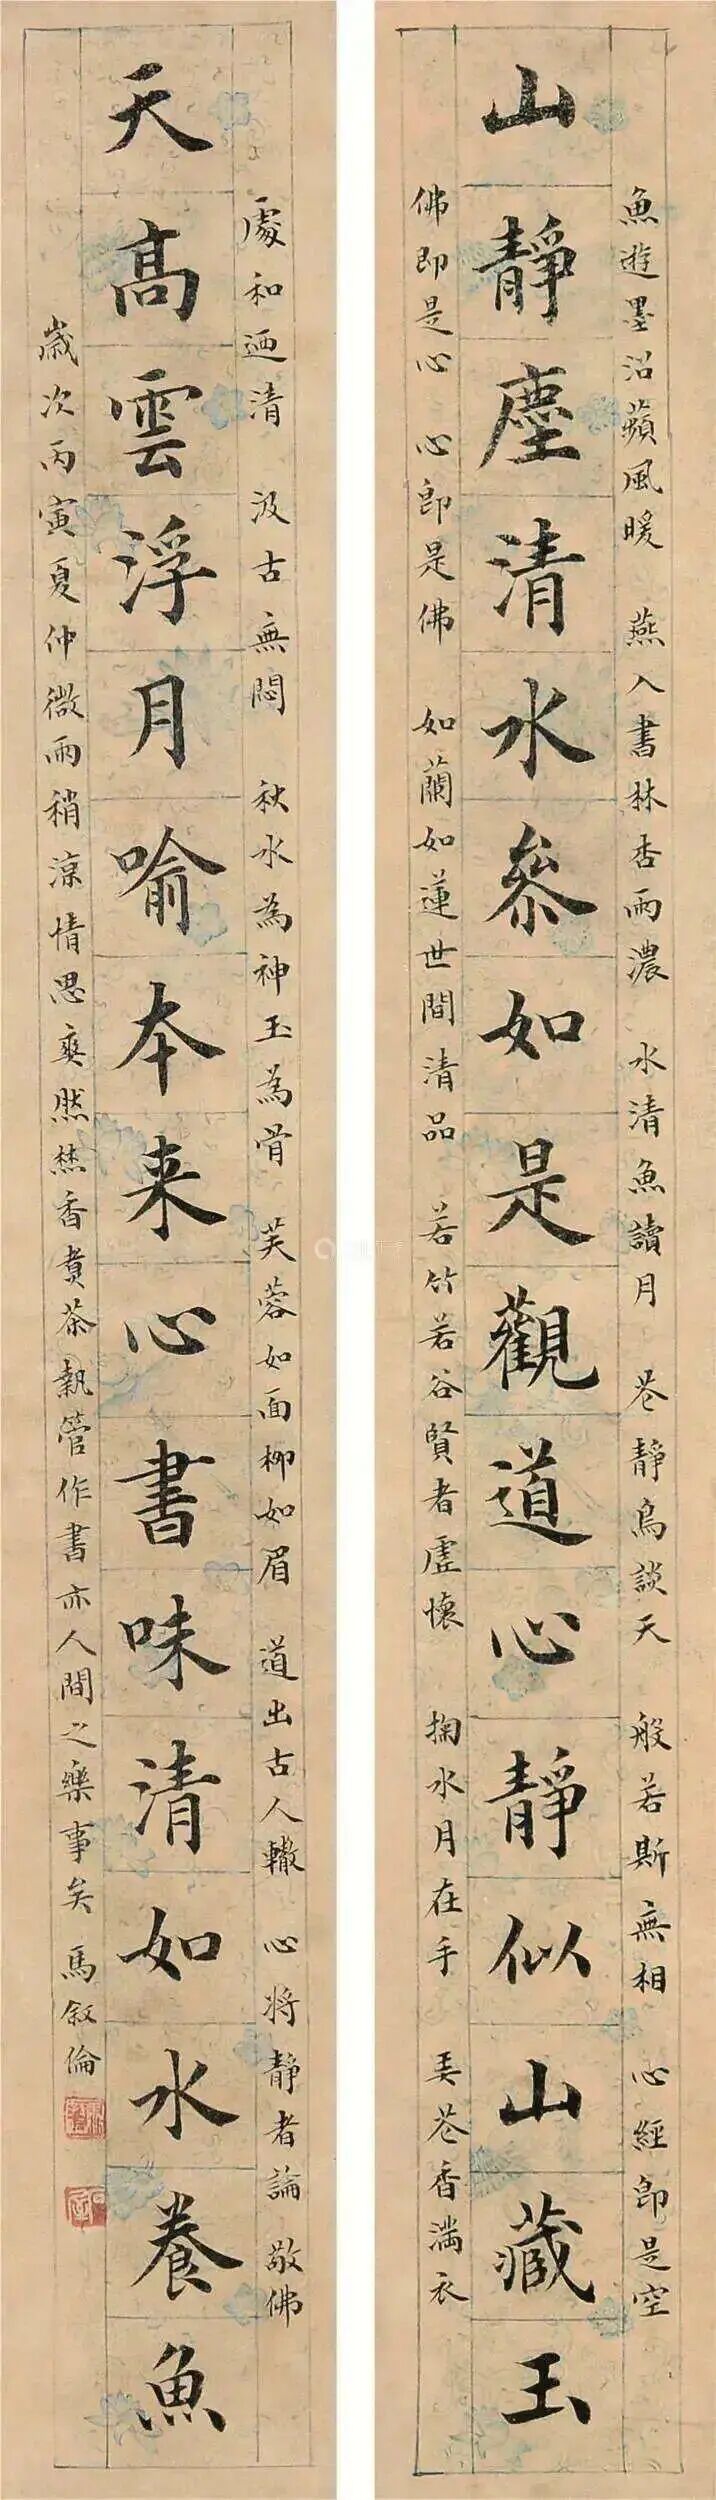 魚遊墨沼蘋風暖 燕入書林杏雨濃 水清魚讀月 花静鳥談天 般若斯無相 心經即是空
山靜塵清水叅如是觀道心靜似山藏玉
佛即是心 心即是佛 如蘭如蓮世間清品 若竹若谷賢者虛懷 掬水月在手 弄花香滿衣
處和迺清 汲古無悶 秋水為神玉為骨 芙蓉如面柳如眉 道出古人轍 心將静者論 敬佛
天高雲浮月喻本来心書味清如水養魚
歲次丙寅夏仲微雨稍涼情思爽然焚香煑茶執管作書亦人間之樂事矣 馬叙倫